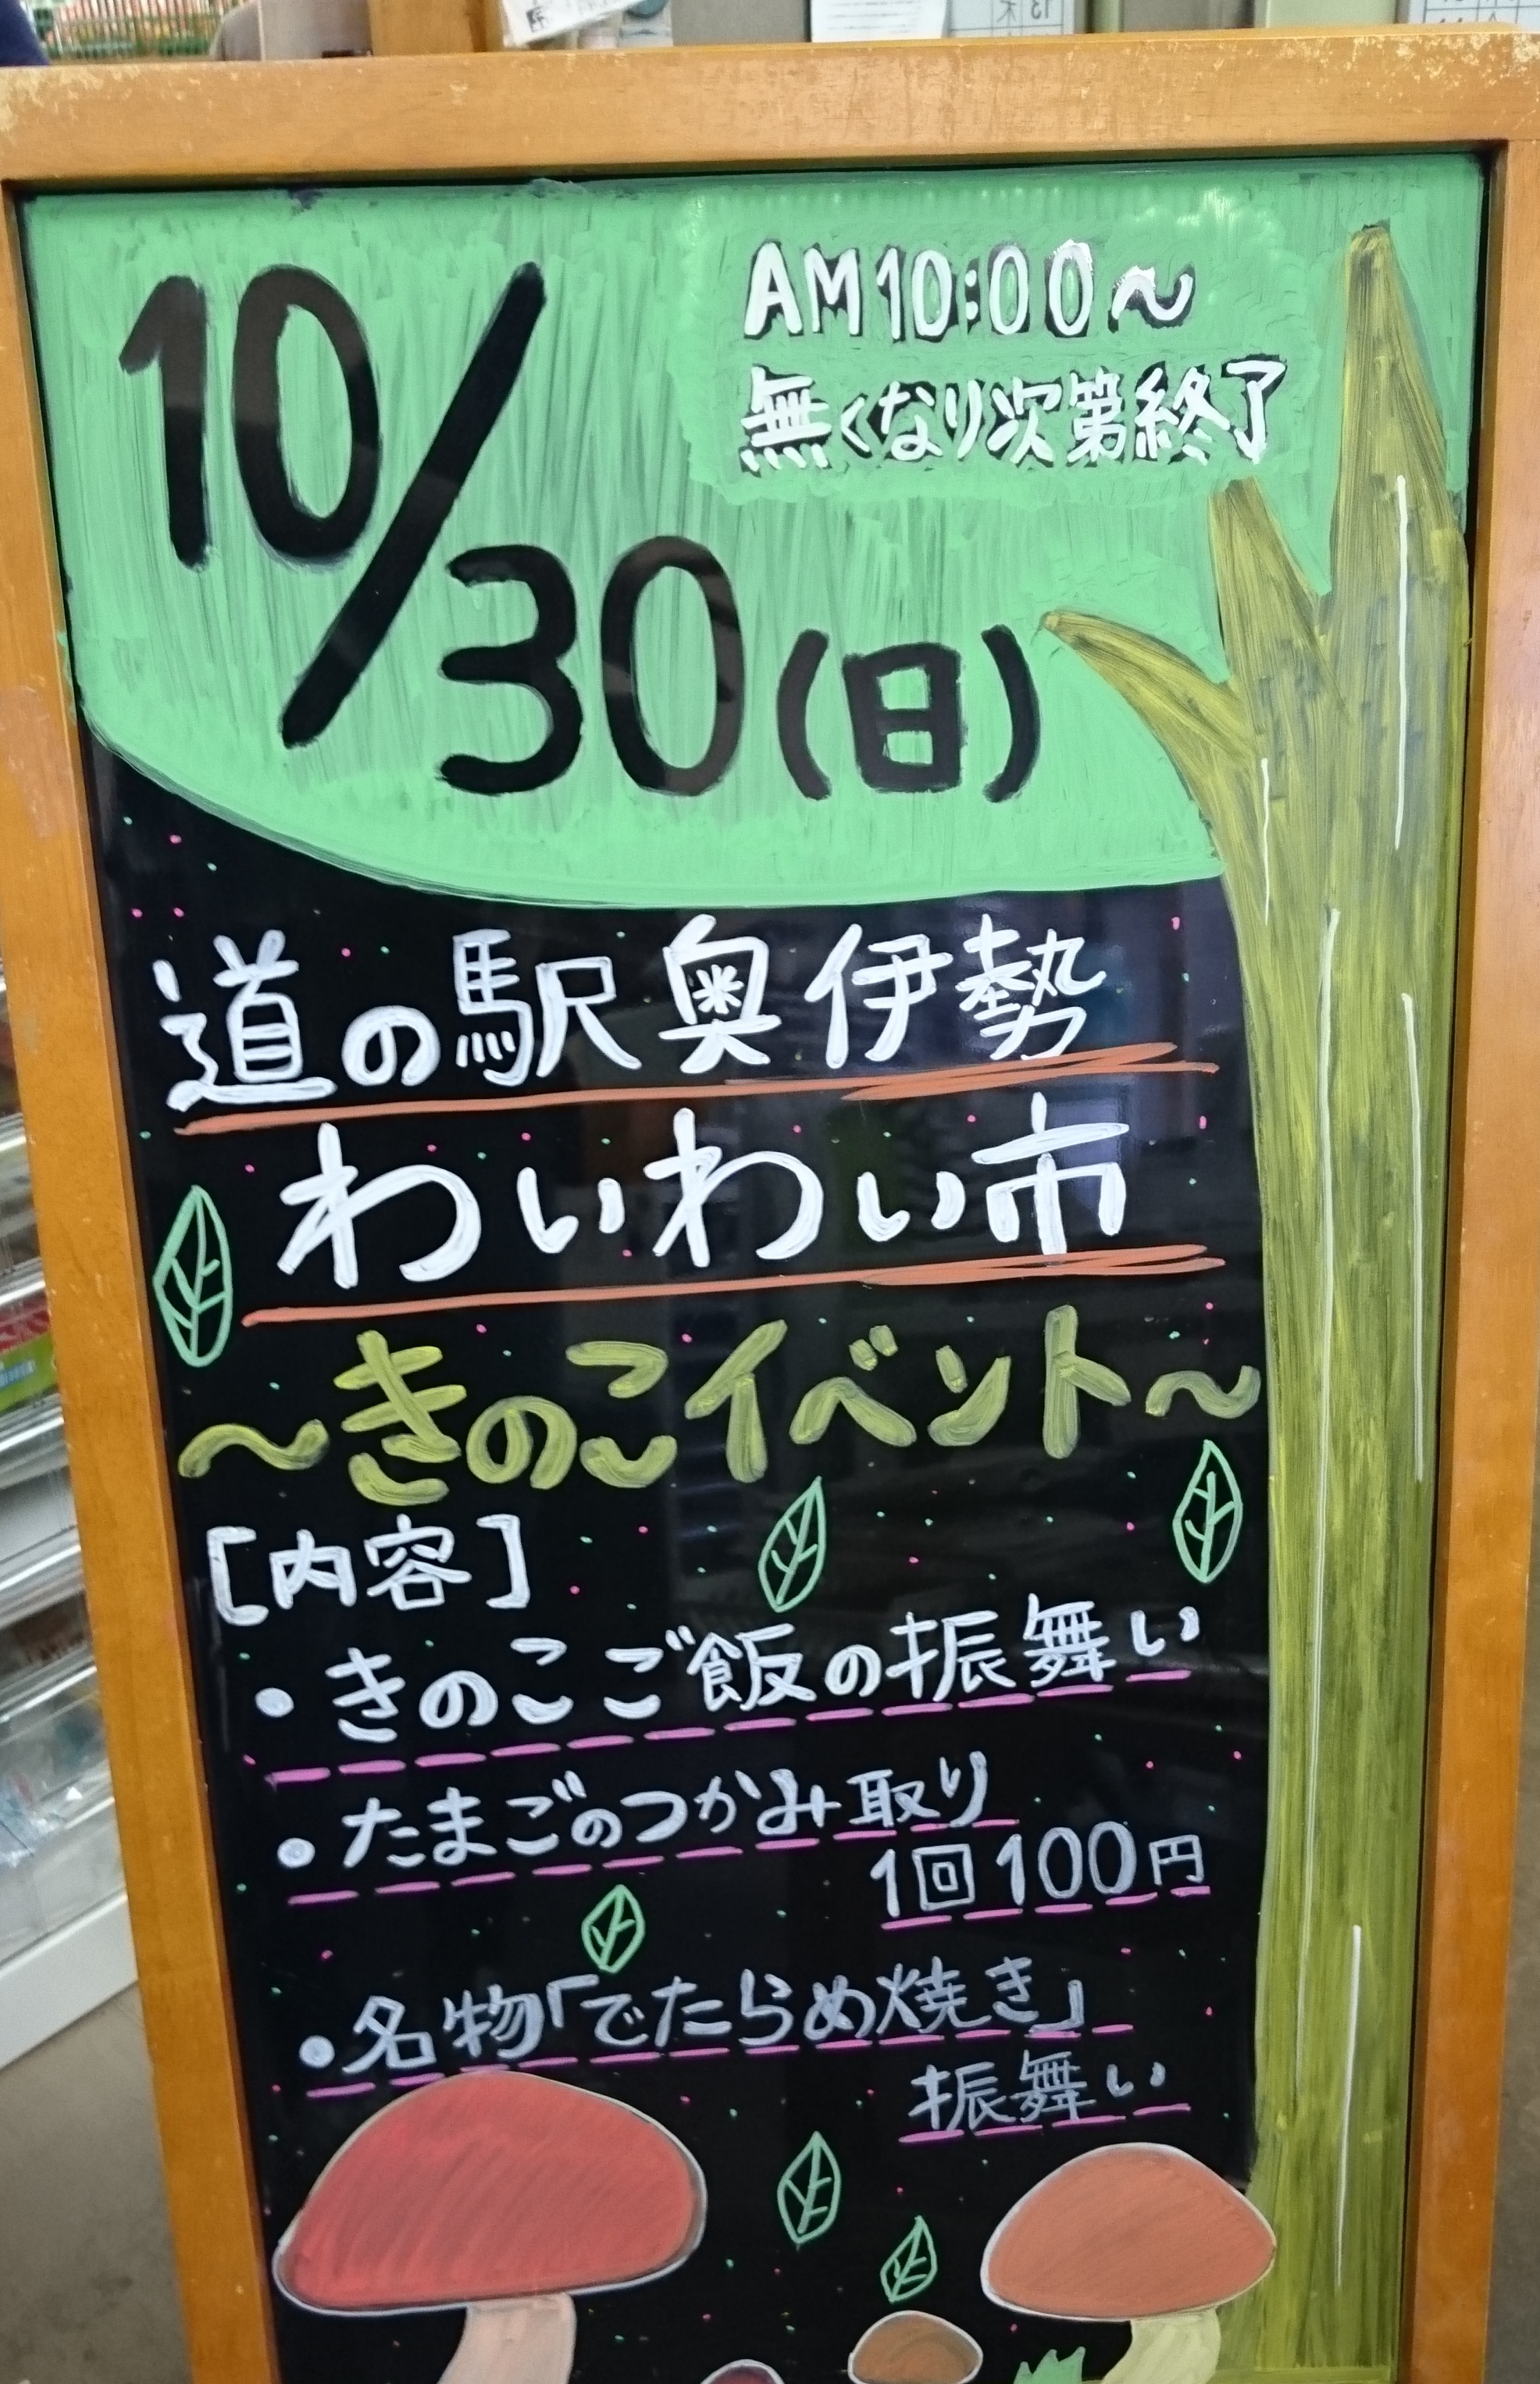 10/30(日)
AM10:00〜
無くなり次第終了
道の駅奥伊勢
わいわい市
〜きのこイベント〜
[内容]
・きのこご飯の振舞い
・たまごのつかみ取り
1回100円
・名物「でたらめ焼き」
振舞い